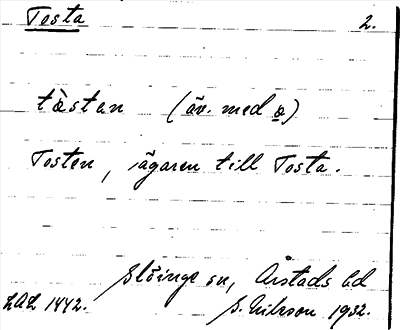 Tosta 2.
tàsten (äv. med o)
Tosten, ägaren till Tosta.
Slöinge sn, Årstads hd
LAL 1442. G. Nilsson 1932.